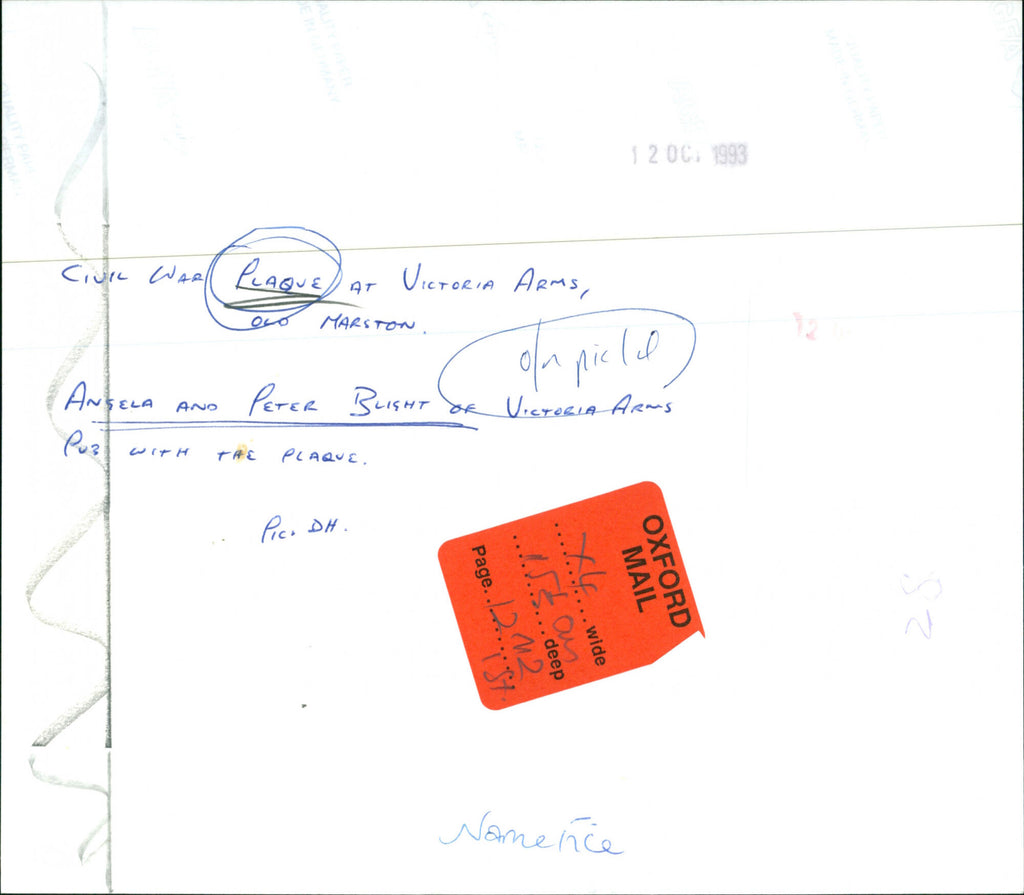 12 OCT 1993
CIVIL WAR PLAQUE AT VICTORIA ARMS,
OLD MARSTON.
ANGELA AND PETER BLIGHT OF VICTORIA ARMS
PUB WITH THE PLAQUE.
PIC. DH.
OXFORD
MAIL
X4 wide
deep
Page 12 M2
1st.
28